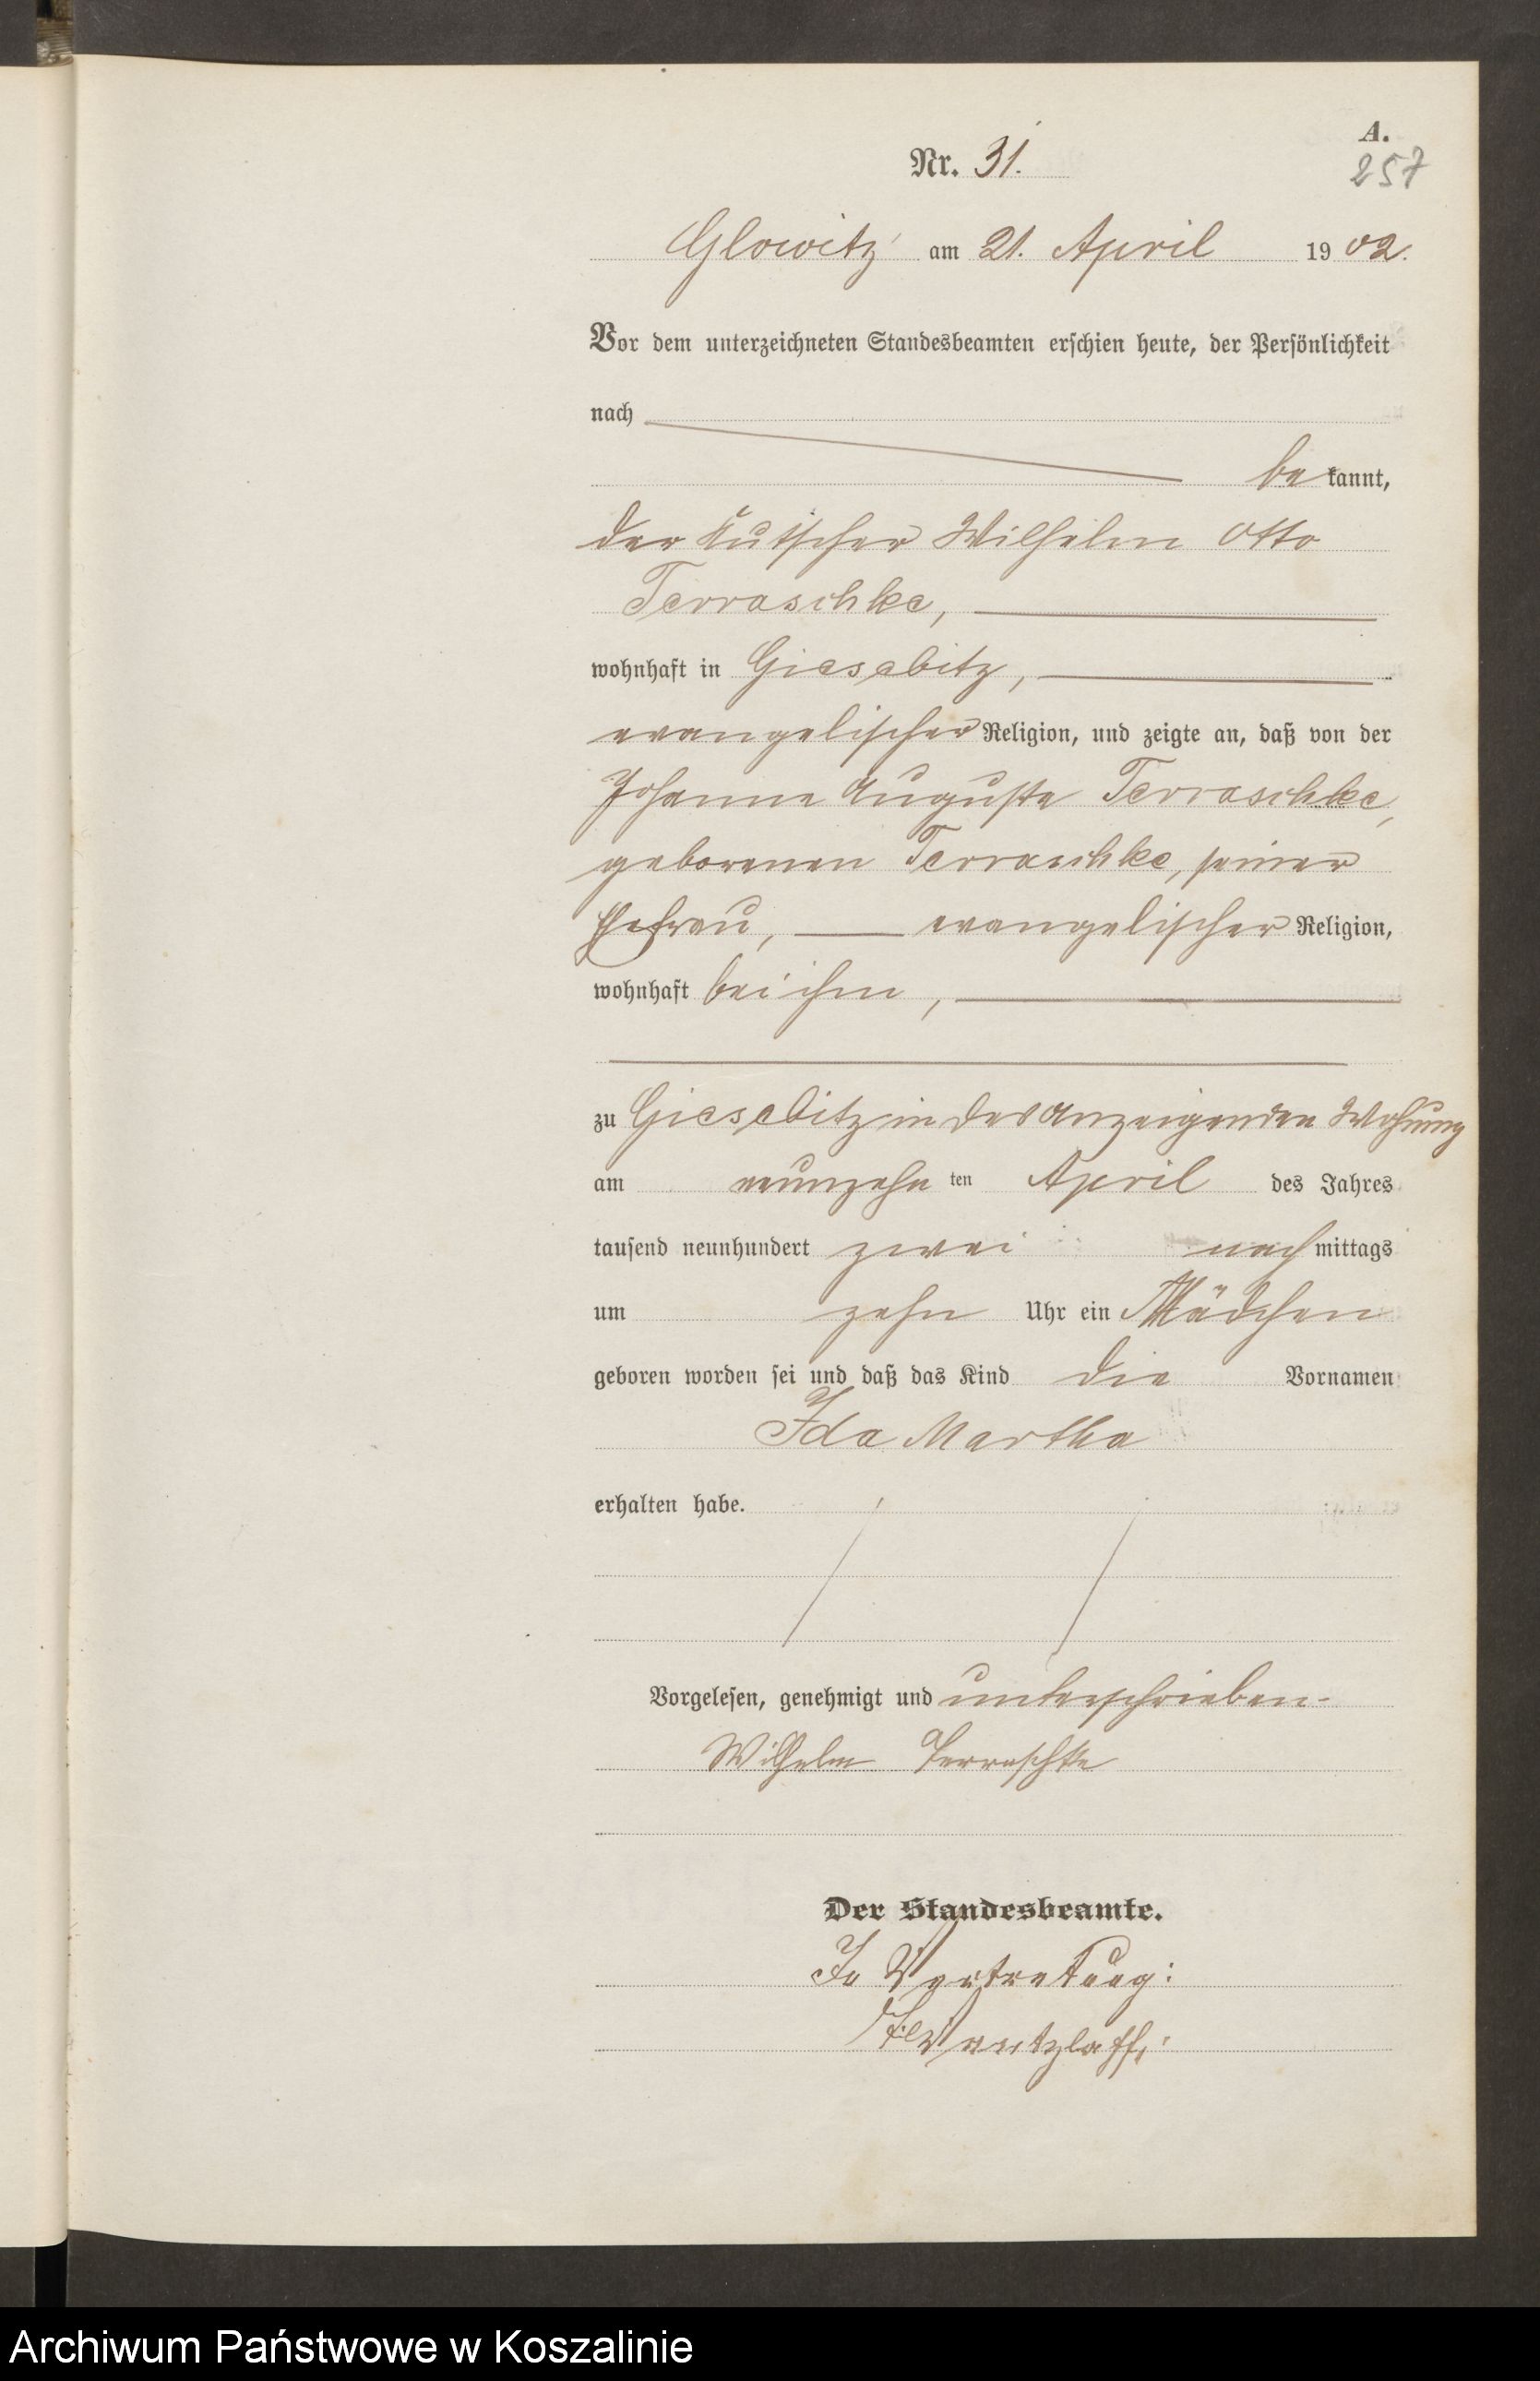 A.
Nr. 31.
257
Glowitz am 21. April 1902.
Vor dem unterzeichneten Standesbeamten erschien heute, der Persönlichkeit
nach
bekannt,
der Kutscher Wilhelm Otto
Terraschke,
wohnhaft in Giesebitz,
evangelischer Religion, und zeigte an, daß von der
Johanne Auguste Terraschke,
geborenen Terraschke, seiner
Ehefrau, evangelischer Religion,
wohnhaft bei ihm,
zu Giesebitz in des Anzeigenden Wohnung
am neunzehnten April des Jahres
tausend neunhundert zwei nachmittags
um zehn Uhr ein Mädchen
geboren worden sei und daß das Kind die Vornamen
Ida Martha
erhalten habe.
Vorgelesen, genehmigt und unterschrieben.
Wilhelm Terraschke
Der Standesbeamte.
In Vertretung:
Archiwum Państwowe w Koszalinie